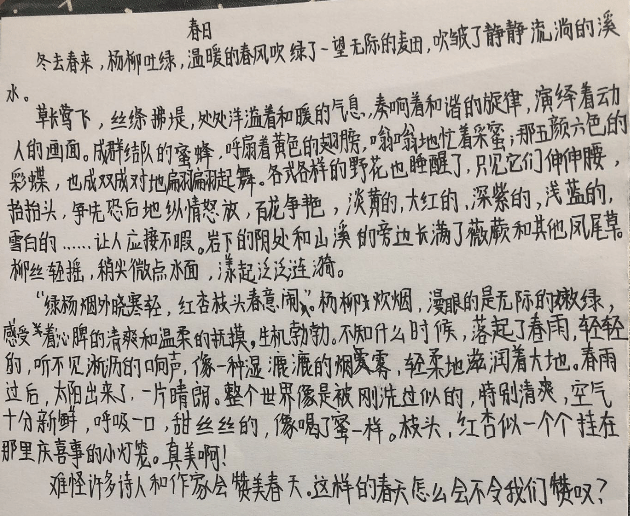 春日
冬去春来，杨柳吐绿，温暖的春风吹绿了一望无际的麦田，吹皱了静静流淌的溪
水。
草长莺飞，丝绦拂堤，处处洋溢着和暖的气息，奏响着和谐的旋律，演绎着动
人的画面。成群结队的蜜蜂，呼扇着黄色的翅膀，嗡嗡地忙着采蜜；那五颜六色的
彩蝶，也成双成对地翩翩起舞。各式各样的野花也睡醒了，只见它们伸伸腰，
抬抬头，争先恐后地纵情怒放，百花争艳，淡黄的，大红的，深紫的，浅蓝的，
雪白的……让人应接不暇。岩下的阴处和山溪的旁边长满了薇蕨和其他凤尾草。
柳丝轻摇，稍尖微点水面，漾起泛泛涟漪。
“绿杨烟外晓寒轻，红杏枝头春意闹”。杨柳炊烟，漫眼的是无际的嫩绿，
感受着沁脾的清爽和温柔的抚摸。生机勃勃。不知什么时候，落起了春雨，轻轻
的，听不见淅沥的响声，像一种湿漉漉的烟雾，轻柔地滋润着大地。春雨
过后，太阳出来了，一片晴朗。整个世界像是被刚洗过似的，特别清爽，空气
十分新鲜，呼吸一口，甜丝丝的，像喝了蜜一样。枝头，红杏似一个个挂在
那里庆喜事的小灯笼。真美啊！
难怪许多诗人和作家会赞美春天。这样的春天怎么会不令我们赞叹？